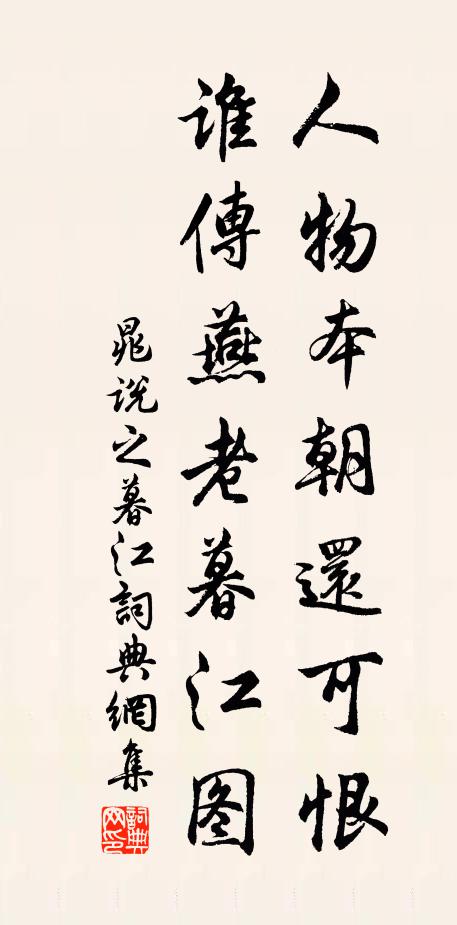 人物本朝還可恨
誰傳燕老暮江图
晁説之暮江詞典網集
詞典网印